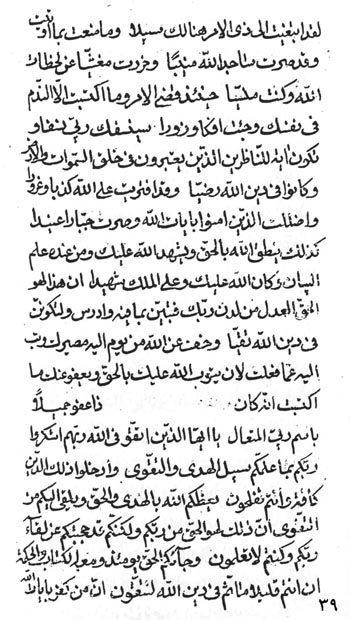 لقد ابتغيت الى ذى الامر هنالك سبيلا وما منعت بما اوتيت
وقد صرت بامر الله منيبا وخررت مغشيا عن لحظات
الله وكنت مليا حينئذ قضى الامر وما اكتسبت الا الندم
فى نفسك وجئت افكا وزورا سيخسفك ربى بنفا و
تكون اية للناظرين الذين يعبرون فى خلق السموات والارض
وكانوا فى دين الله رضيا وقد افتريت على الله كذبا وغرورا
واضللت الذين امنوا بايات الله وصرت جبارا عنيدا
كذلك ينطق الله بالحق ويشهد الله عليك ومن عنده علم
البيان وكان الله عليك وعلى الملك شهيدا ان هذا لهو
الحق العدل من لدن ربك فتبين بما فيه وادرس ولتكونن
فى دين الله تقيا وخف عن الله من يوم اليه مصيرك وتب
اليه عما فعلت لان يتوب الله عليك بالحق ويعفو عنك ما
اكتسبت انه كان ذا عفو جميلا
باسم ربى المتعال يا ايها الذين اتقوا فى الله ربهم اشكروا
ربكم بما علمكم سبيل الهدى والتقوى وادخلوا فى ذلك الدين
كافة انتم تفلحون يعظكم الله بالهدى والحق ويلقى اليكم من
التقوى ان ذلك لهو الحق من ربكم ولكنكم قد حجبتم عن لقاء
ربكم وكنتم لا تعلمون وجاءكم الحق يومئذ ومعه الكتاب والحكمة
ان انتم قليلا ما انتم فى دين الله لتتقون ان من كفر بايات الله
٣٩